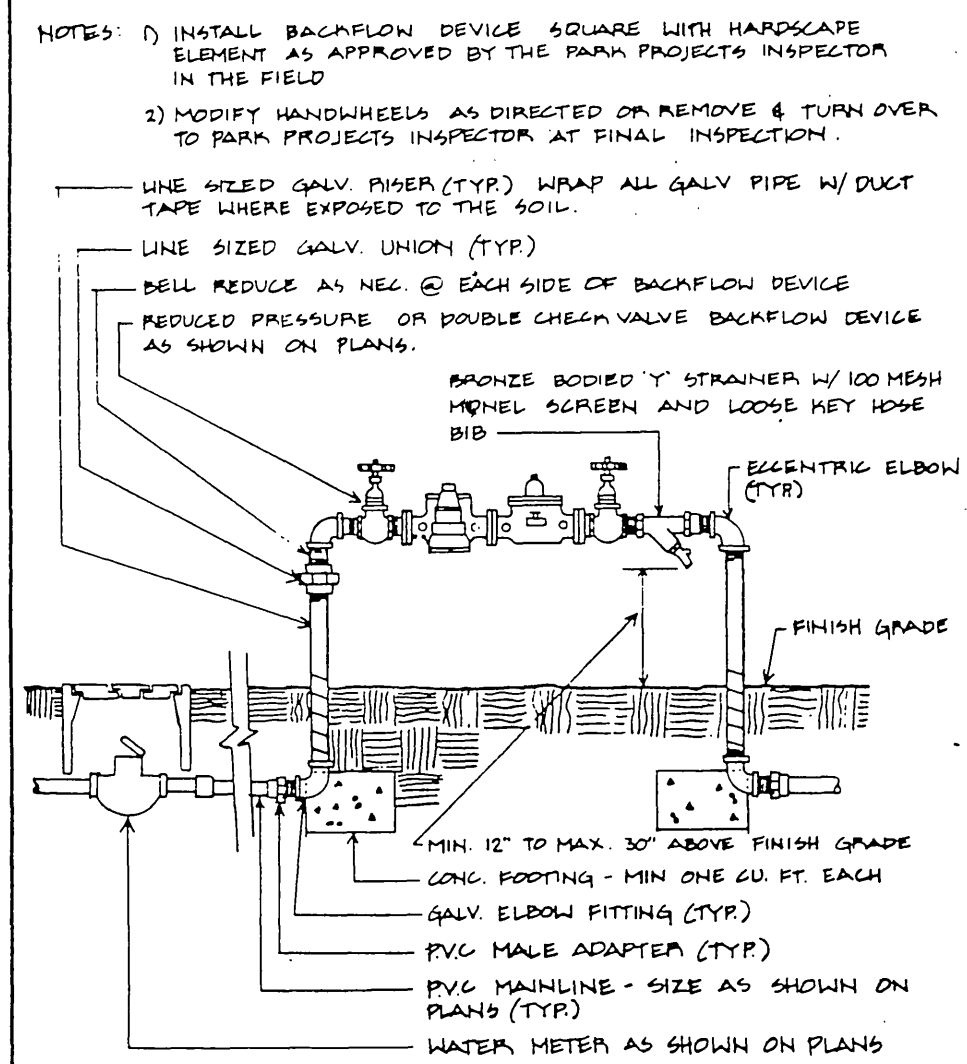 NOTES: 1) INSTALL BACKFLOW DEVICE SQUARE WITH HARDSCAPE
ELEMENT AS APPROVED BY THE PARK PROJECTS INSPECTOR
IN THE FIELD
2) MODIFY HANDWHEELS AS DIRECTED OR REMOVE & TURN OVER
TO PARK PROJECTS INSPECTOR AT FINAL INSPECTION.
LINE SIZED GALV. RISER (TYP.) WRAP ALL GALV PIPE W/ DUCT
TAPE WHERE EXPOSED TO THE SOIL.
LINE SIZED GALV. UNION (TYP.)
BELL REDUCE AS NEC. @ EACH SIDE OF BACKFLOW DEVICE
REDUCED PRESSURE OR DOUBLE CHECK VALVE BACKFLOW DEVICE
AS SHOWN ON PLANS.
BRONZE BODIED 'Y' STRAINER W/ 100 MESH
MONEL SCREEN AND LOOSE KEY HOSE
BIB
ECCENTRIC ELBOW
(TYP.)
FINISH GRADE
MIN. 12" TO MAX. 30" ABOVE FINISH GRADE
CONC. FOOTING - MIN ONE CU. FT. EACH
GALV. ELBOW FITTING (TYP.)
P.V.C MALE ADAPTER (TYP.)
P.V.C MAINLINE - SIZE AS SHOWN ON
PLANS (TYP.)
WATER METER AS SHOWN ON PLANS